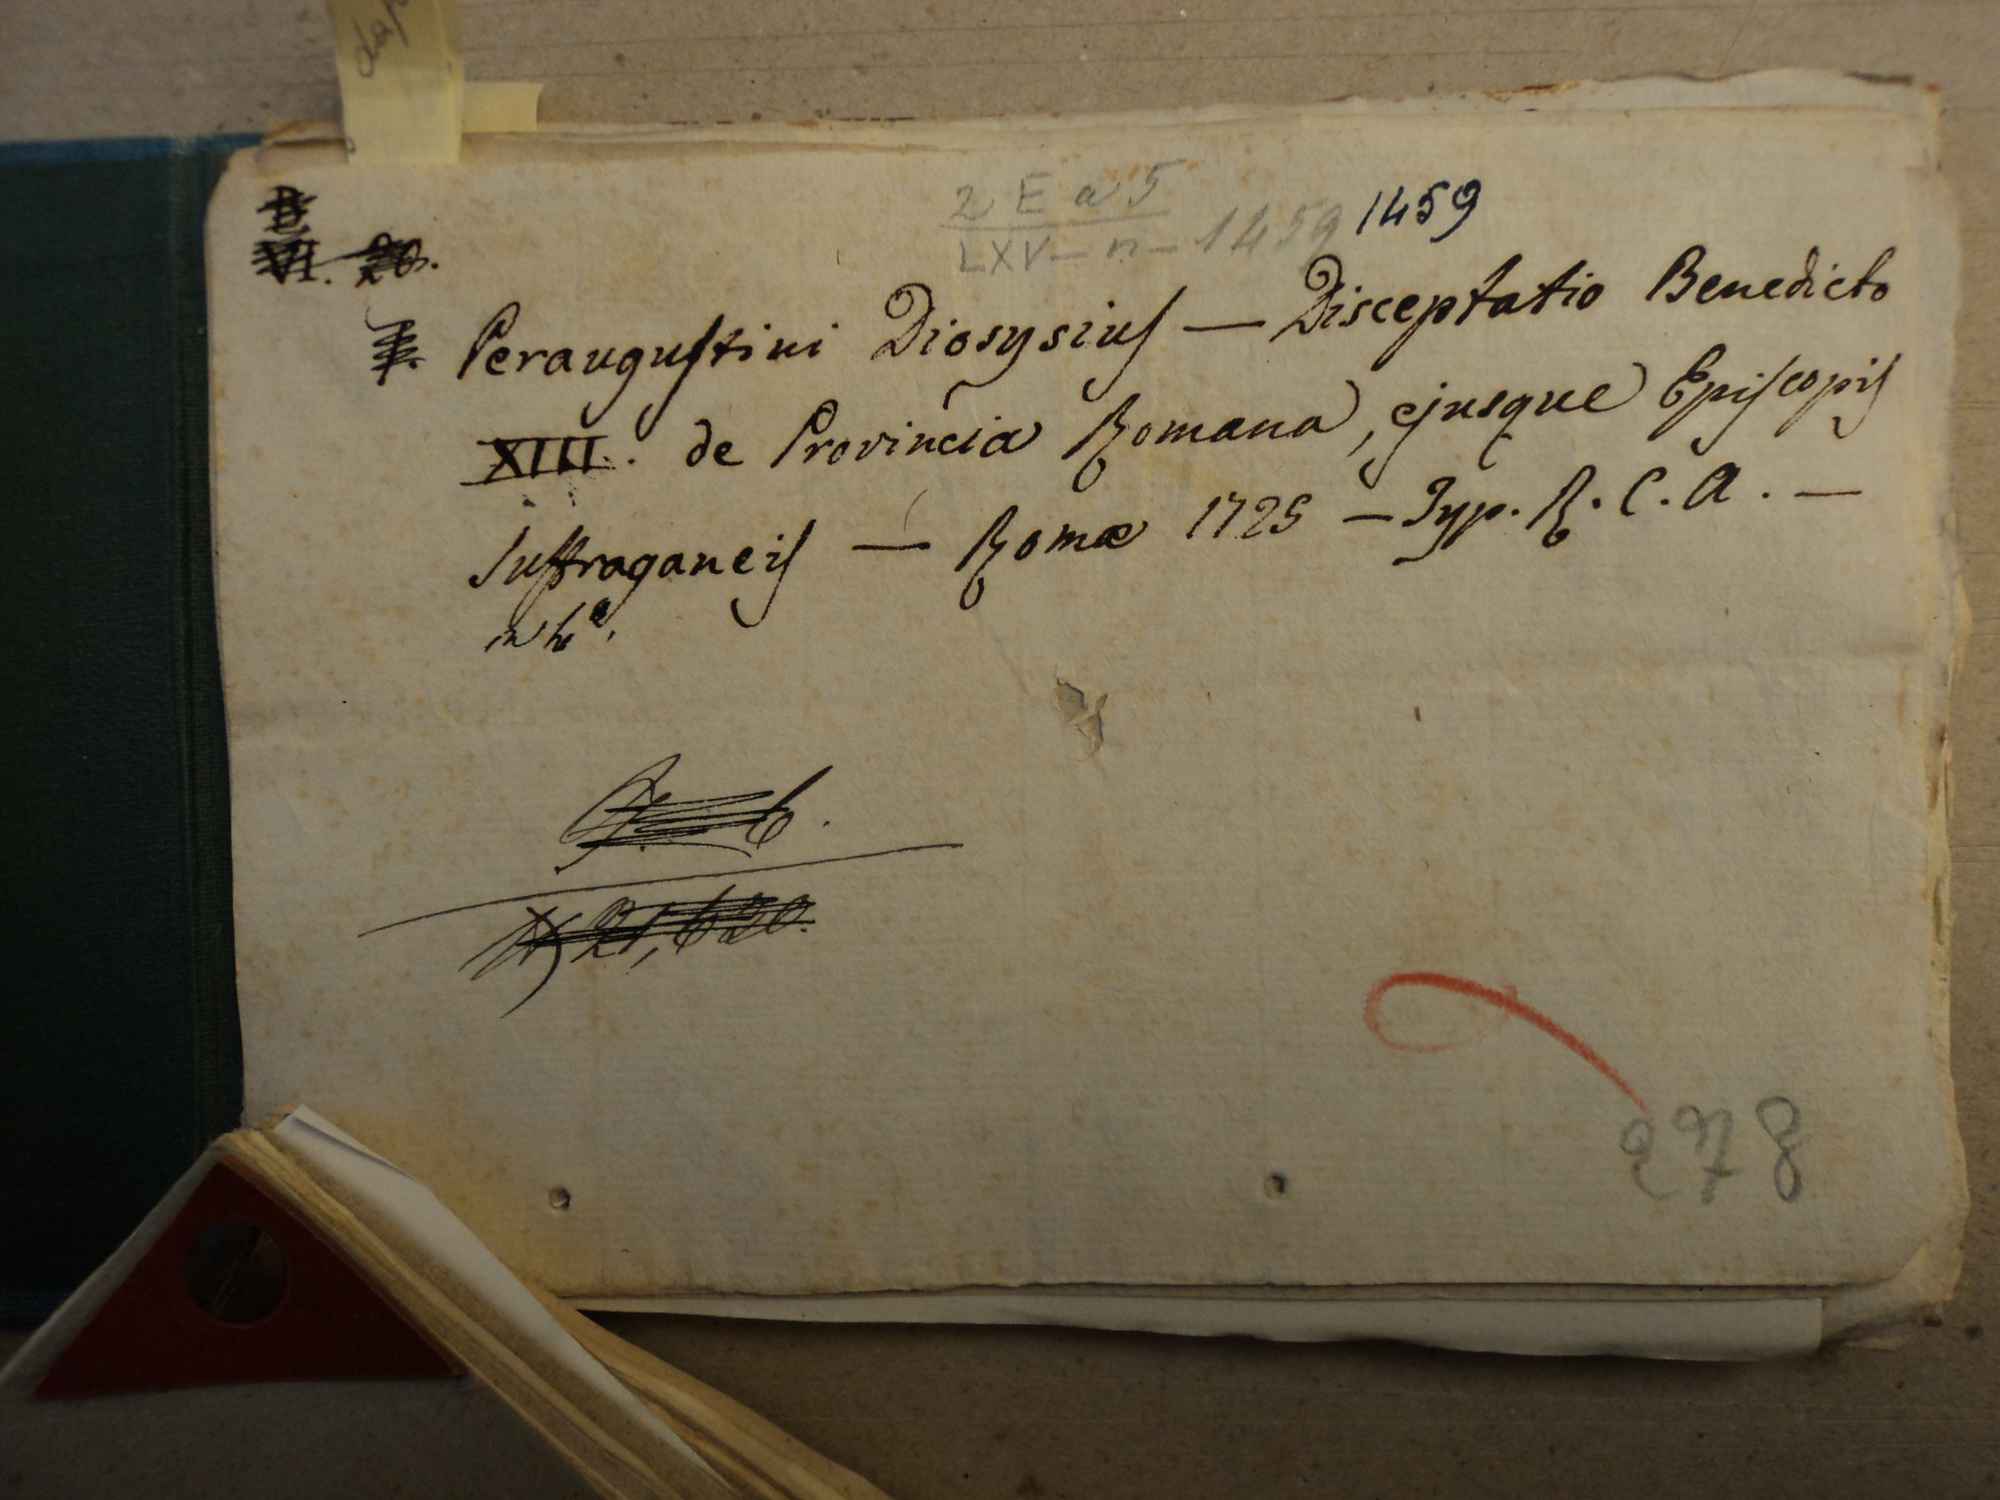 2 E a 5
LXV - n - 1459 1459
VI. 20.
Peraugustini Diosysius — Disceptatio Benedicto
XIII. de Provincia Romana, ejusque Episcopis
Suffraganeis — Romæ 1725 — Typ. R. C. A. —
21,620.
278